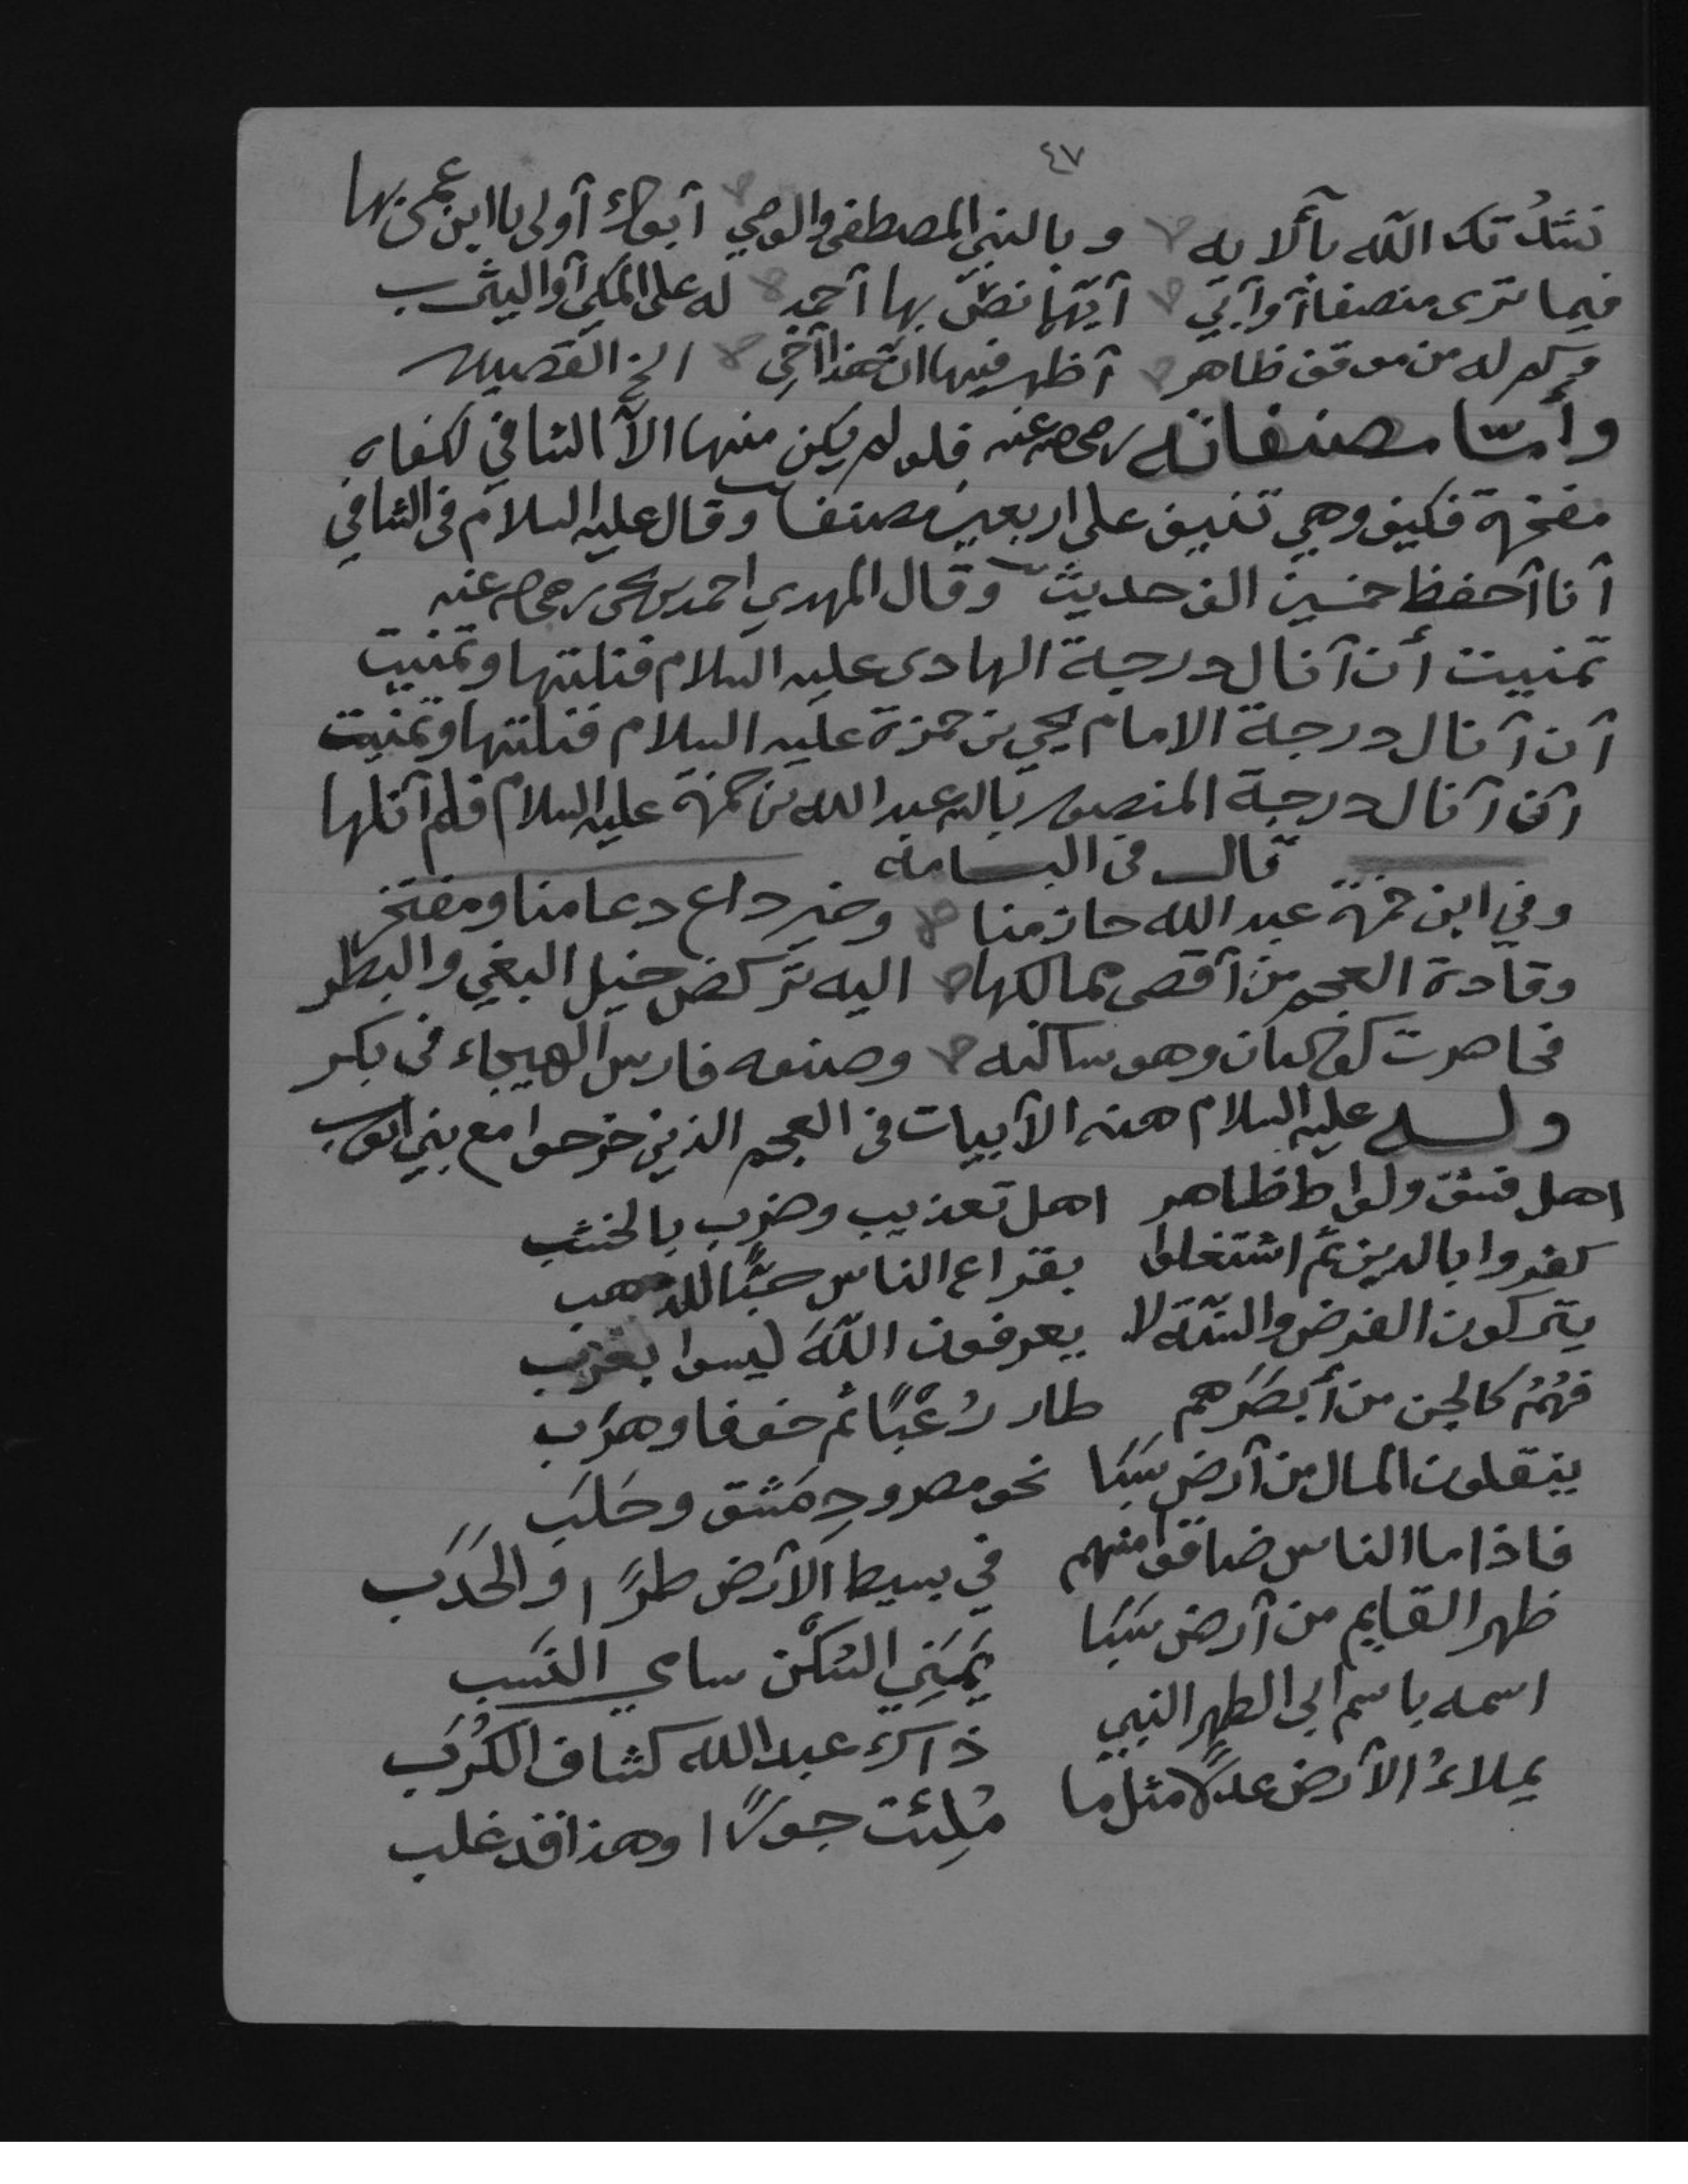 ٤٧
نشدُتك الله بآلايه وبالنبي المصطفى والوصي آبوك أولى يا ابن عمي بها
فيما ترى منصفا آو آبي آيهما نصّ بها آحمد له على المكي آو اليثرب
وكم له من موقف ظاهر آظهر فيها ان هذا آخي الخ القصيده
وأمّا مصنفاته رضي الله عنه فلو لم يكن منها الاّ الشافي لكفاه
مفخرة فكيف وهي تنيف على اربعين مصنفا وقال عليه السلام في الشافي
آنا آحفظ خمسين الف حديث وقال المهدي احمد بن يحيى رضي الله عنه
تمنيت أن آنال درجة الهادي عليه السلام فنلتها وتمنيت
آن آنال درجة الامام يحيى بن حمزة عليه السلام فنلتها وتمنيت
آن آنال درجة المنصور بالله عبد الله بن حمزة عليه السلام فلم آنلها
قال في البسامة
وفي ابن حمزة عبد الله حازمنا وخير داع دعا منا ومفتخر
وقادة العجم من آقصى ممالكها اليه تركض خيل البغي والبطر
فحاصرت كوكبان وهو ساكنه وصنوه فارس الهيجاء في بكر
وله عليه السلام هذه الآبيات في العجم الذين خرجوا مع بني ايوب
اهل فسق ولواط ظاهر اهل تعذيب وضرب بالخشب
كفروا بالدين ثم اشتغلوا بقراع الناس حبًّا للذهب
يتركون الفرض والسنّة لا يعرفون اللّهَ ليسوا بعرب
فهُمُ كالجن من أبصَرَهم طار رُعْبًا ثم خوفا وهرَب
ينقلون المال من آرض سَبَا نحو مصر ودِمَشق وحَلَب
فاذا ما الناس ضاقوا منهم في بسيط الآرض طرًا والحَدَب
ظهر القايم من آرض سَبَا يَمَنِي السّكْن سامي النسَب
اسمه باسم ابي الطهر النبي ذآك عبد الله كشاف الكُرَب
يملاءُ الآرض عدلاً مثل ما مُلِئَت جورًا وهذا قد غلب